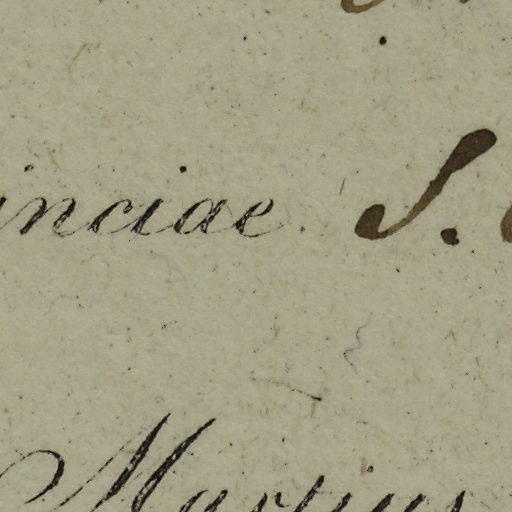 inciae S.
Martius